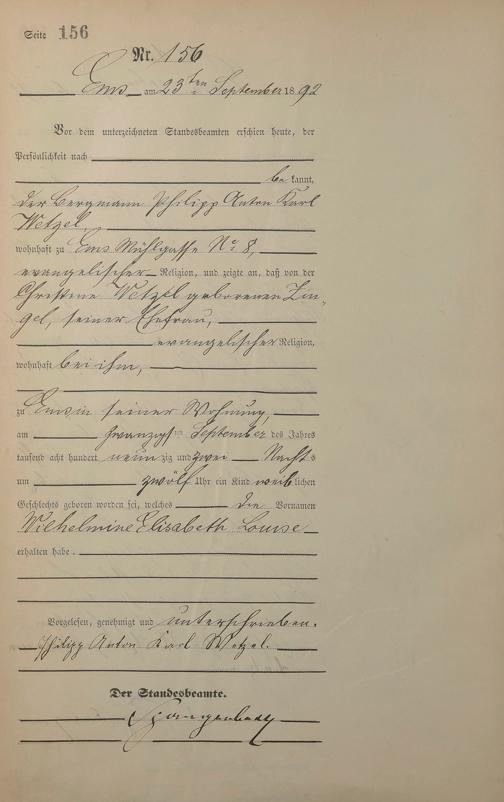 Seite 156
Nr. 156
Ems am 23ten September 1892
Vor dem unterzeichneten Standesbeamten erschien heute, der
Persönlichkeit nach
bekannt,
der Bergmann Philipp Anton Karl
Wetzel
wohnhaft zu Ems Mühlgasse No 8,
evangelischer Religion, und zeigte an, daß von der
Christine Wetzel geborenen Zin-
gel, seiner Ehefrau,
evangelischer Religion,
wohnhaft bei ihm,
zu Ems in seiner Wohnung,
am zwanzigsten September des Jahres
tausend acht hundert neunzig und zwei Nachts
um zwölf Uhr ein Kind weiblichen
Geschlechts geboren worden sei, welches die Vornamen
Wilhelmine Elisabeth Louise
erhalten habe.
Vorgelesen, genehmigt und unterschrieben.
Philipp Anton Karl Wetzel.
Der Standesbeamte.
Spangenberg